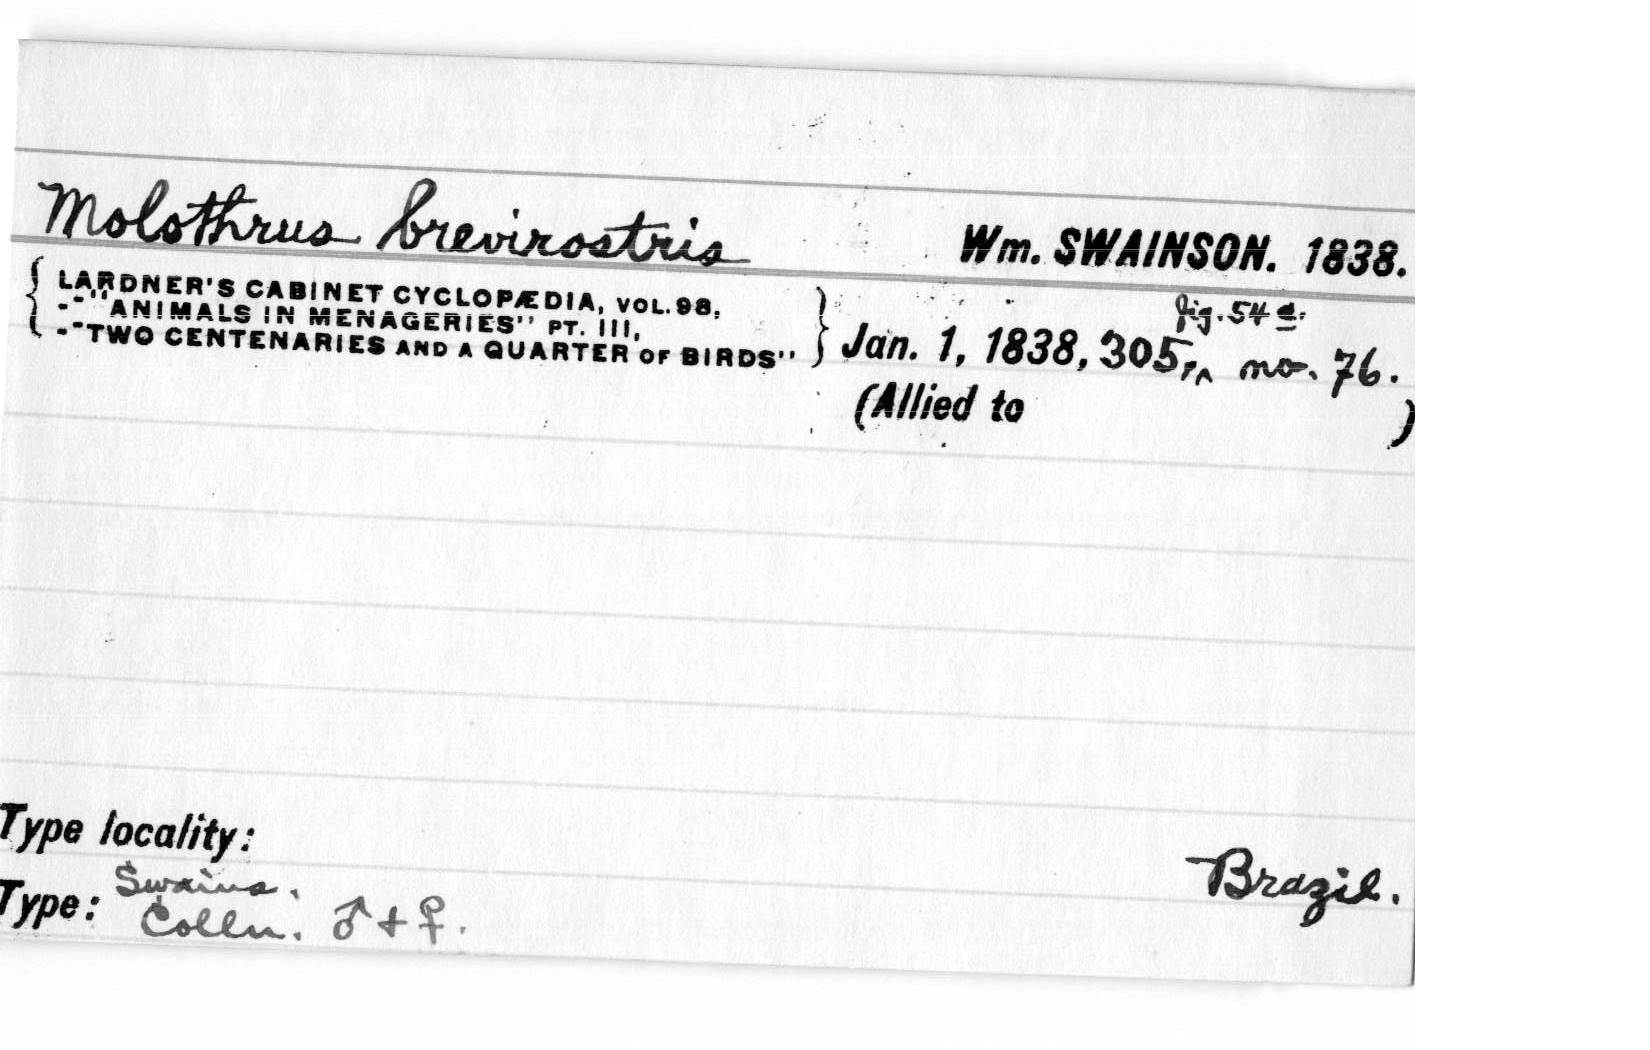 Molothrus brevirostris
Wm. SWAINSON. 1838.
LARDNER'S CABINET CYCLOPÆDIA, VOL. 98,
--"ANIMALS IN MENAGERIES" PT. III,
--"TWO CENTENARIES AND A QUARTER OF BIRDS"
fig. 54 a.
Jan. 1, 1838, 305,^ no. 76.
(Allied to )
Type locality:
Brazil.
Type: Swains.
Colln. ♂ + ♀.